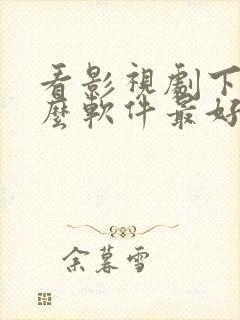 看影視劇下
麼軟件最好
余暮雪